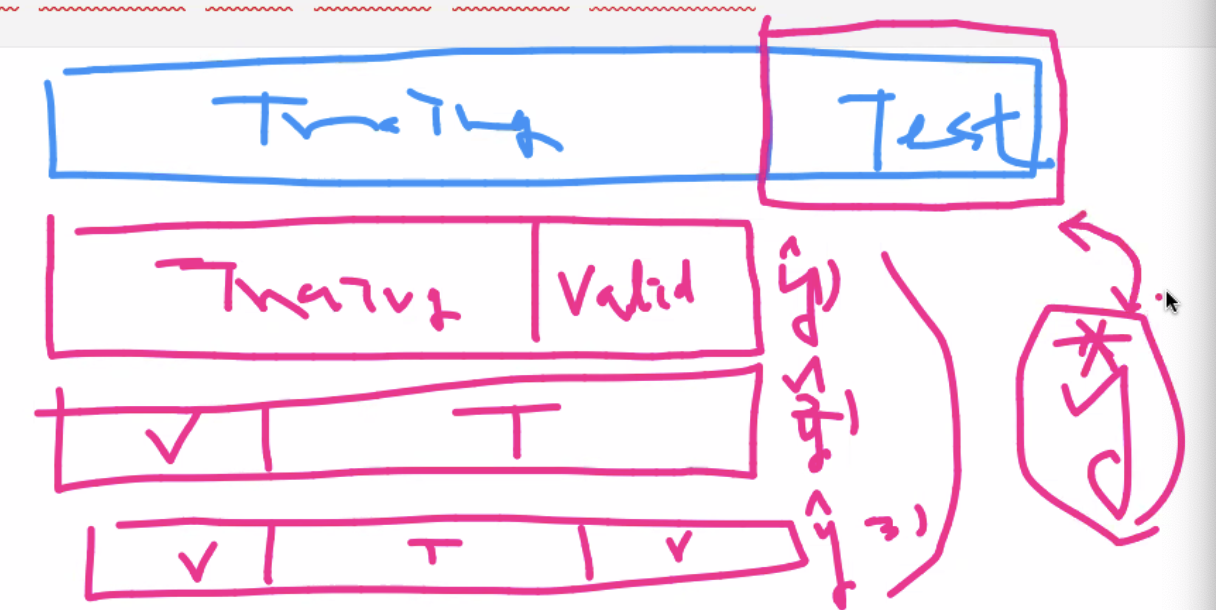 Training Test
Training Valid ŷ)
V T ŷ)
V T V ŷ 3)
*
y